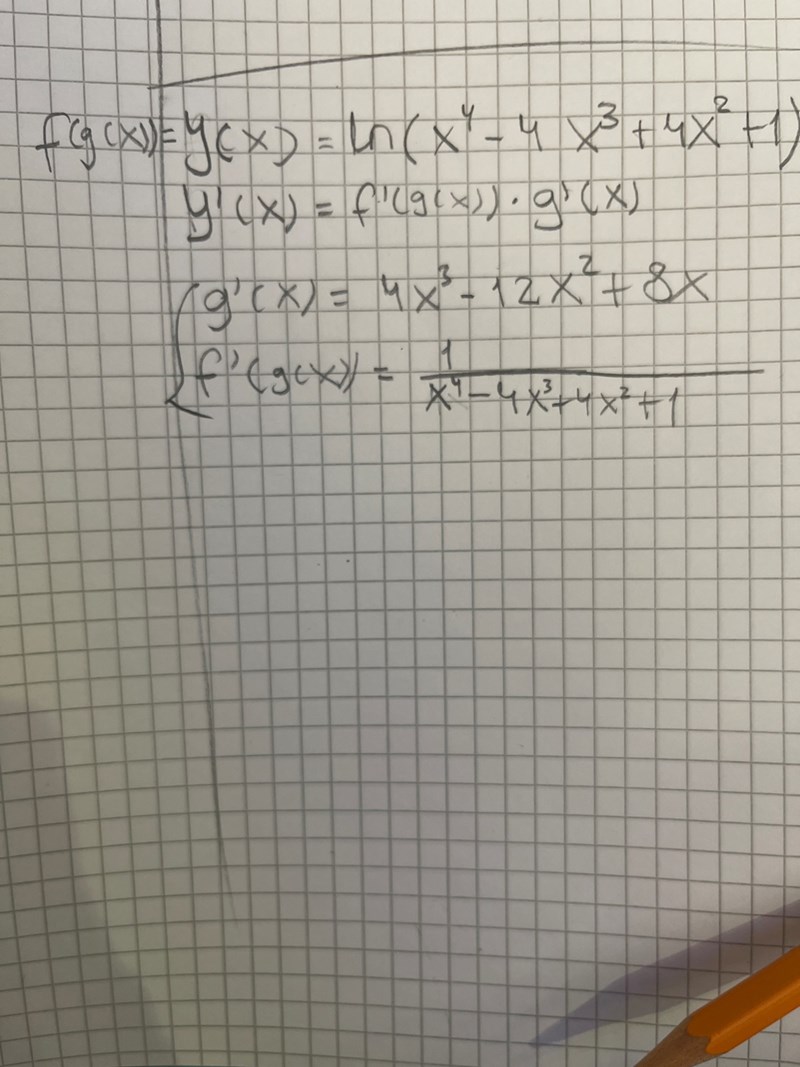 f(g(x)) = y(x) = ln(x⁴ - 4x³ + 4x² + 1)
y'(x) = f'(g(x)) · g'(x)
g'(x) = 4x³ - 12x² + 8x
f'(g(x)) = 1 / (x⁴ - 4x³ + 4x² + 1)